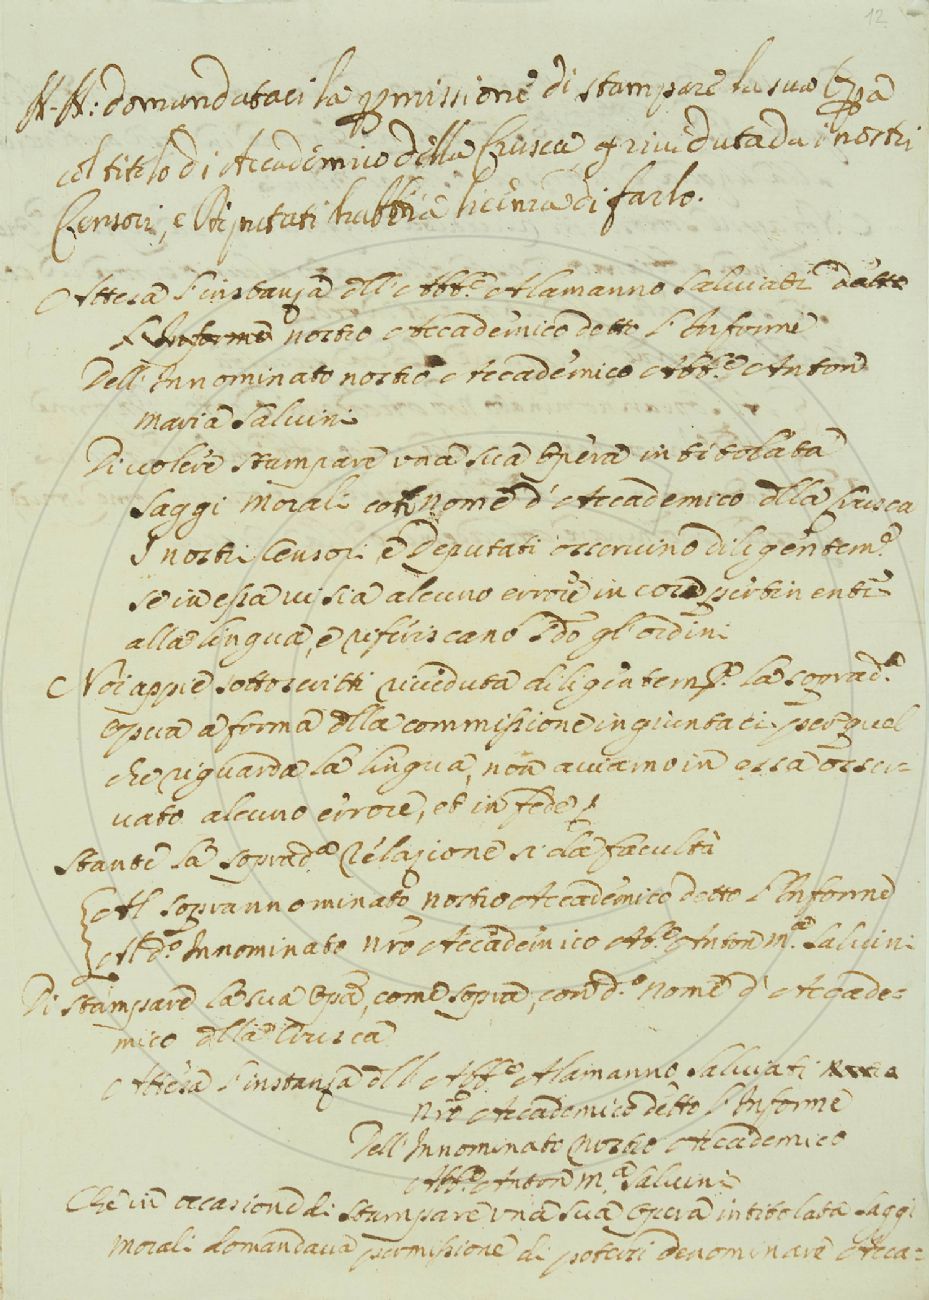 12
N. N: domandataci la permissione di stampare la sua Opa
col titolo di Accademico della Crusca, e riveduta da i nostri
Censori, e Deputati habbia licenza di farlo.
Attesa l'instanza dll' Abb.e Alamanno Salviati detto
l'Informe nostro Accademico detto l'Informe
Dell' Innominato nostro Accademico Abb.e Anton
Maria Salvini
Di volere stampare una sua Opera intitolata
Saggi Morali col nome d' Accademico dlla Crusca
I nostri Censori e Deputati osservino diligentem.e
se in essa vi sia alcuno errore in cose pertinenti
alla lingua, e riferiscano s.do gl' ordini
Noi appie sottoscritti riveduta diligentem.e la soprad.a
opera a forma dlla commissione ingiuntaci per quel
che riguarda la lingua, non aviamo in essa osser-
vato alcuno errore, et in fede
Stante la soprad.a Relazione si da facultà
Al soprannominato nostro Accademico detto l'Informe
Al d.o Innominato nro Accademico Ab.e Anton M.a Salvini
Di stampare la sua Opa, come sopra, con d.o nome d' Accade-
mico dlla Crusca
Attesa l'instanza dll' Abb.e Alamanno Salviati
nro Accademico detto l'Informe
Dell' Innominato nostro Accademico
Abb.e Anton M.a Salvini
Che in occasione di stampare una sua Opera intitolata Saggi
Morali domandava permissione di potersi denominare Acca-